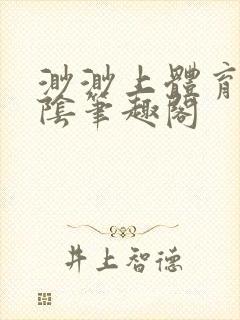 渺渺上體育
陰筆趣閣
井上智德